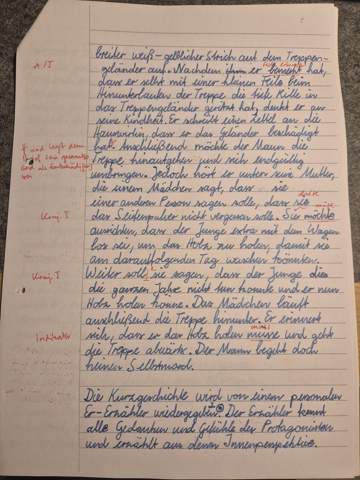 breiter weiß-gelblicher Strich auf dem Treppen-
geländer auf. Nachdem er bemerkt hat,
dass er selbst mit einer kleinen Feile beim
Hinunterlaufen der Treppe die tiefe Rille in
das Treppengeländer geritzt hat, denkt er an
seine Kindheit. Er schreibt einen Zettel an die
Hauswirtin, dass er das Geländer beschädigt
hat. Anschließend möchte der Mann die
Treppe hinaufgehen und sich endgültig
umbringen. Jedoch hört er unten seine Mutter,
die einem Mädchen sagt, dass sie
einer anderen Person sagen solle, dass sie
das Seifenpulver nicht vergessen solle. Sie möchte
ausrichten, dass der Junge extra mit dem Wagen
los sei, um das Holz zu holen, damit sie
am darauffolgenden Tag waschen könnten.
Weiter soll sie sagen, dass der Junge dies
die ganzen Jahre nicht tun konnte und er nun
Holz holen könne. Das Mädchen läuft
anschließend die Treppe hinunter. Er erinnert
sich, dass er das Holz holen müsse und geht
die Treppe abwärts. Der Mann begeht doch
keinen Selbstmord.
Die Kurzgeschichte wird von einem personalen
Er-Erzähler wiedergegeben. Der Erzähler kennt
alle Gedanken und Gefühle des Protagonisten
und erzählt aus dessen Innenperspektive.
Konj. I
Konj. I
Indikativ